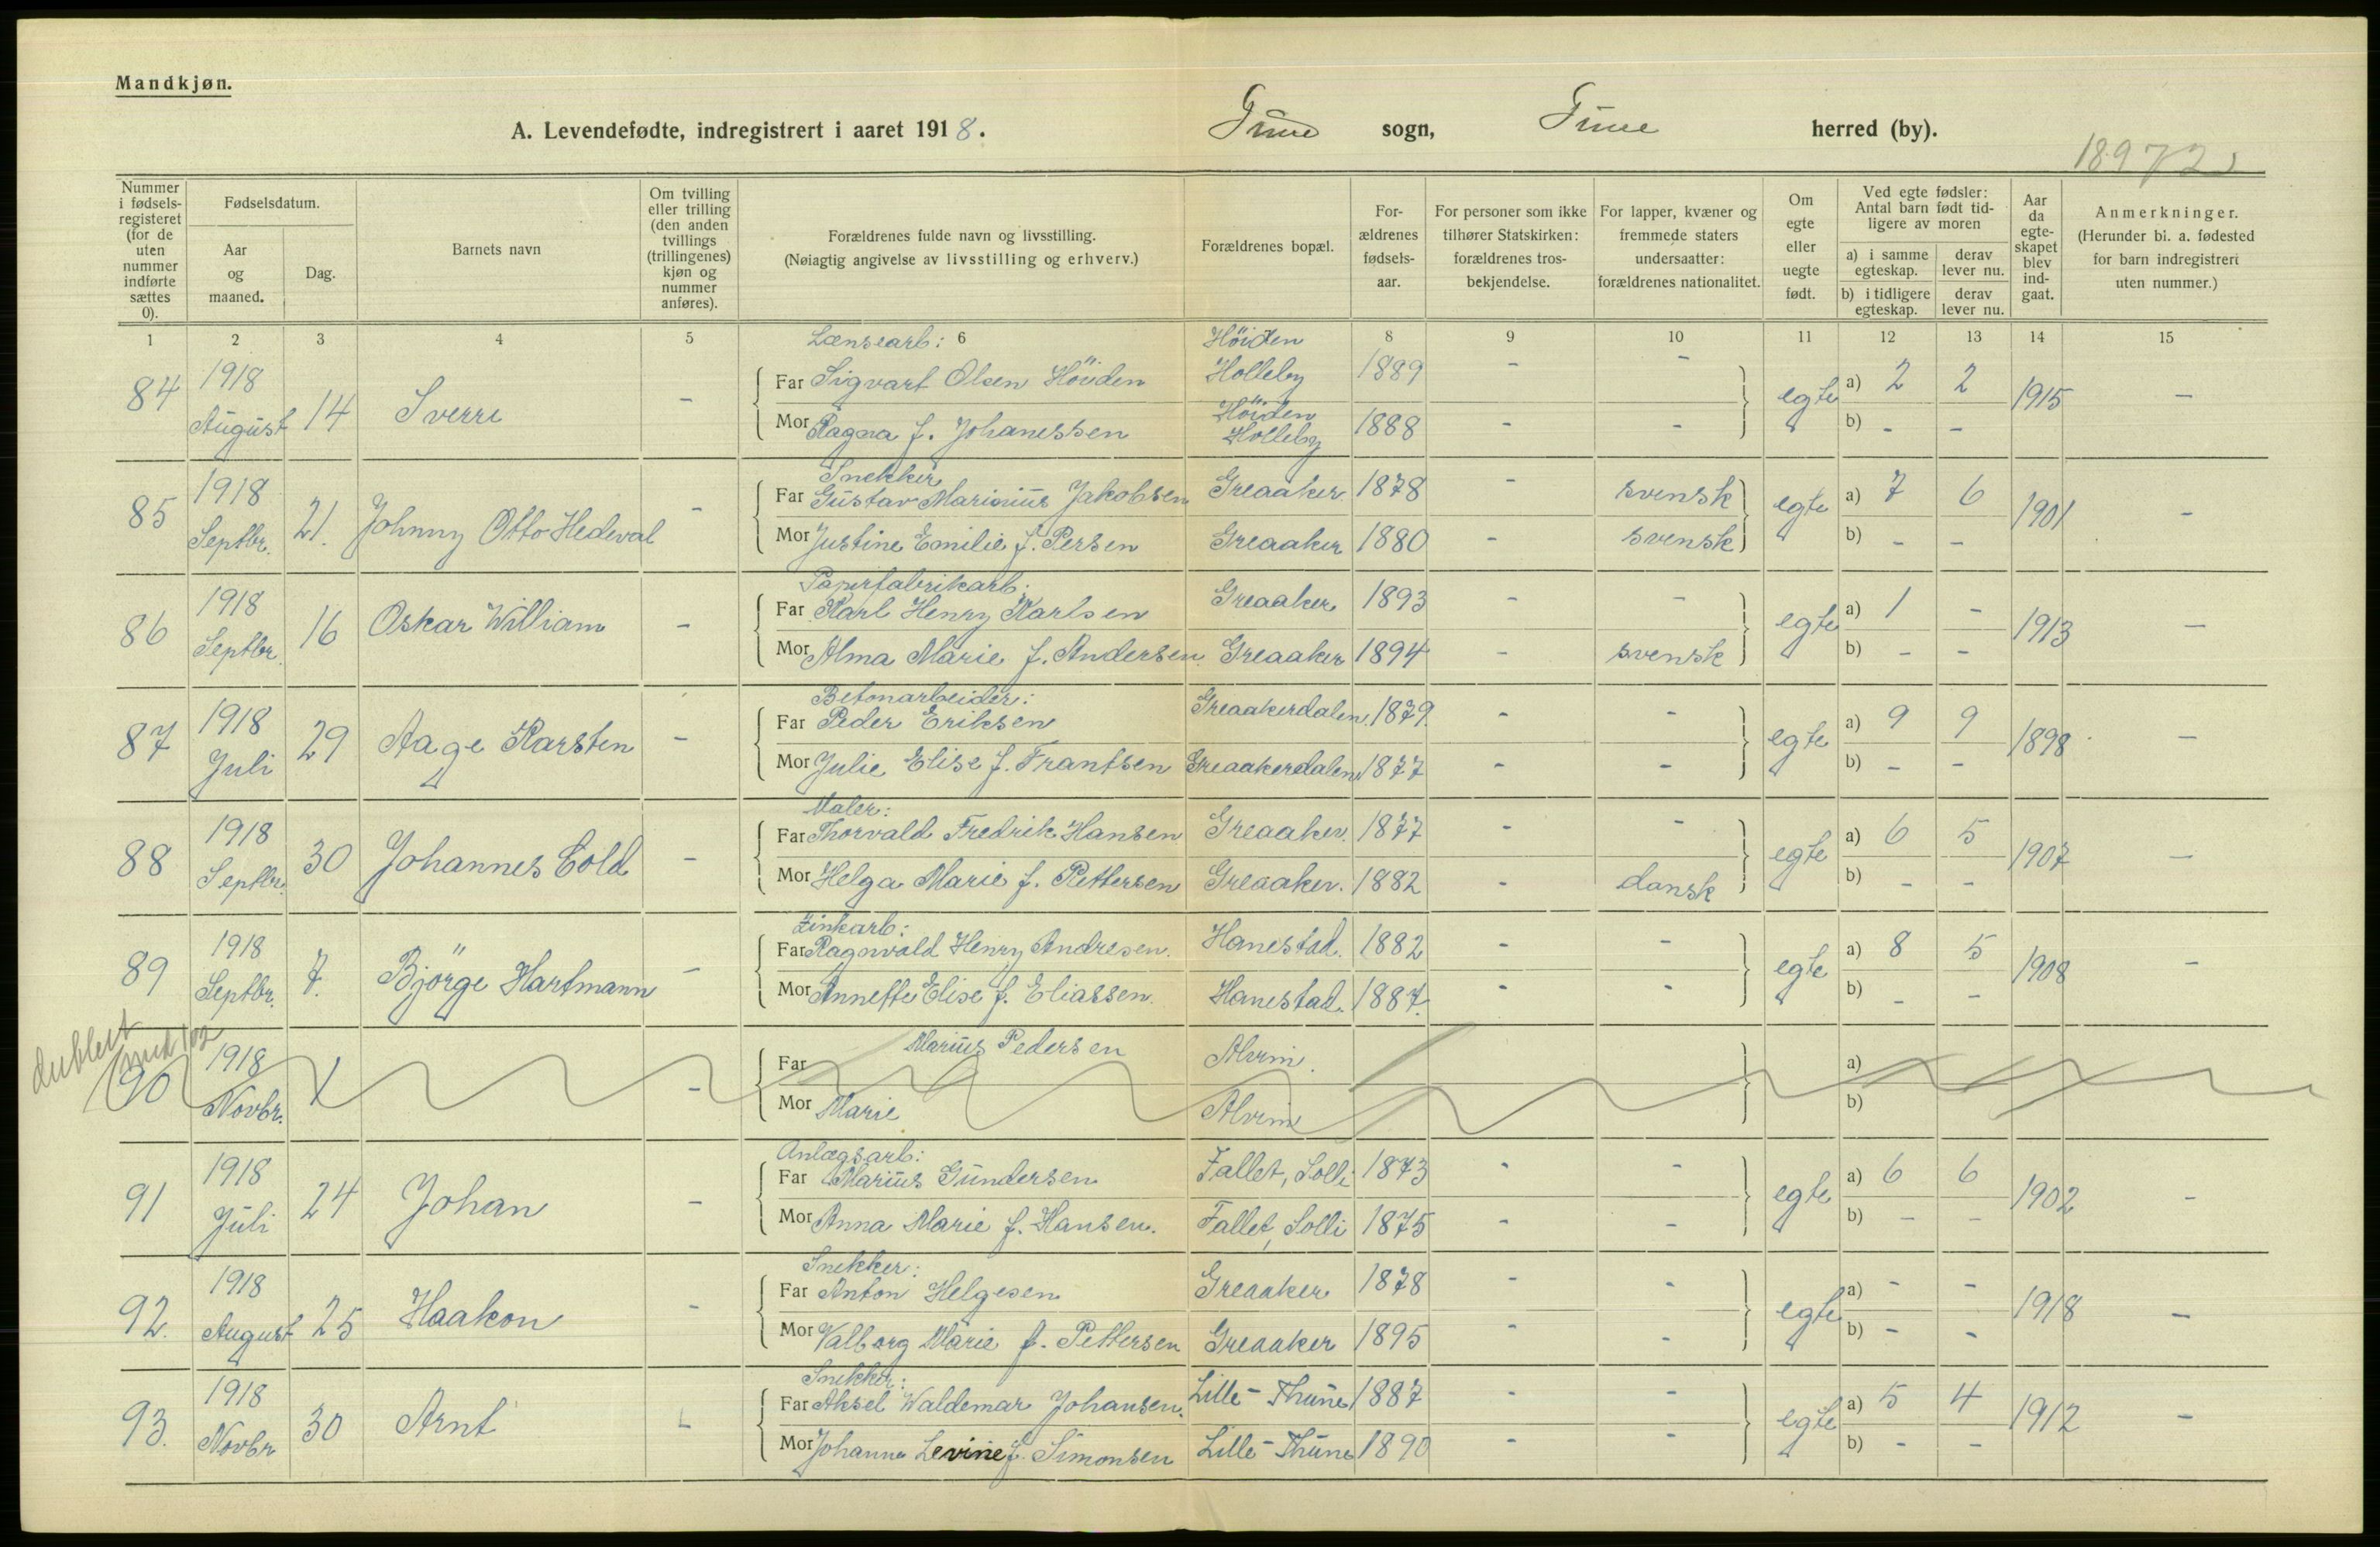 Mandkjøn.
A. Levendefødte, indregistrert i aaret 1918. Tune sogn, Tune herred (by).
18972
Nummer i fødselsregisteret (for de uten nummer indførte sættes 0).
Fødselsdatum.
Aar og maaned.
Dag.
Barnets navn
Om tvilling eller trilling (den anden tvillings (trillingenes) kjøn og nummer anføres).
Forældrenes fulde navn og livsstilling.
(Nøiagtig angivelse av livsstilling og erhverv.)
Forældrenes bopæl.
Forældrenes fødselsaar.
For personer som ikke tilhører Statskirken: forældrenes trosbekjendelse.
For lapper, kvæner og fremmede staters undersaatter: forældrenes nationalitet.
Om egte eller uegte født.
Ved egte fødsler: Antal barn født tidligere av moren
a) i samme egteskap. derav lever nu.
b) i tidligere egteskap. derav lever nu.
Aar da egteskapet blev indgaat.
Anmerkninger.
(Herunder bl. a. fødested for barn indregistrert uten nummer.)
1 2 3 4 5 6 8 9 10 11 12 13 14 15
Lænsearb: Höiden
84 1918 August 14 Sverre - Far Sigvart Olsen Höiden Holleby 1889 - - egte a) 2 2 1915 -
Mor Ragna f. Johanessen Höiden Holleby 1888 - - b) - -
Snekker
85 1918 Septbr. 21. Johnny Otto Hedeval - Far Gustav Marinius Jakobsen Greaaker 1878 - svensk egte a) 7 6 1901 -
Mor Justine Emilie f. Persen Greaaker 1880 - svensk b) - -
Papirfabrikarb.
86 1918 Septbr. 16 Oskar William - Far Karl Henry Karlsen Greaaker 1893 - egte a) 1 - 1913 -
Mor Alma Marie f. Andersen Greaaker 1894 - svensk b) - -
Betonarbeider:
87 1918 Juli 29 Aage Karsten - Far Peder Eriksen Greaakerdalen 1879. - - egte a) 9 9 1898 -
Mor Julie Elise f. Frantsen Greaakerdalen 1877 - - b) - -
Maler:
88 1918 Septbr. 30 Johannes Cold - Far Thorvald Fredrik Hansen Greaaker. 1877 - - egte a) 6 5 1907 -
Mor Helga Marie f. Pettersen Greaaker. 1882 - dansk b) - -
Zinkarb:
89 1918 Septbr. 7. Bjørge Hartmann - Far Ragnvald Henry Andresen. Hanestad. 1882 - - egte a) 8 5 1908 -
Mor Annette Elise f. Eliassen. Hanestad. 1887. - - b) - -
dublett med 102
90 1918 Novbr. 1 - Far Marius Pedersen Alvim. a)
Mor Marie Alvim b)
Anlægsarb:
91 1918 Juli 24 Johan - Far Marius Gundersen Fallet, Solli 1873 - - egte a) 6 6 1902 -
Mor Anna Marie f. Hansen. Fallet, Solli 1875 - - b) - -
Snekker:
92. 1918 August 25 Haakon - Far Anton Helgesen Greaaker 1878 - - egte a) - - 1918 -
Mor Valborg Marie f. Pettersen Greaaker 1895 - - b) - -
Snekker:
93. 1918 Novbr 30 Arnt - Far Aksel Waldemar Johansen. Lille-Thune 1887 - - egte a) 5 4 1912 -
Mor Johanne Levine f. Simonsen Lille-Thune 1890 - - b) - -